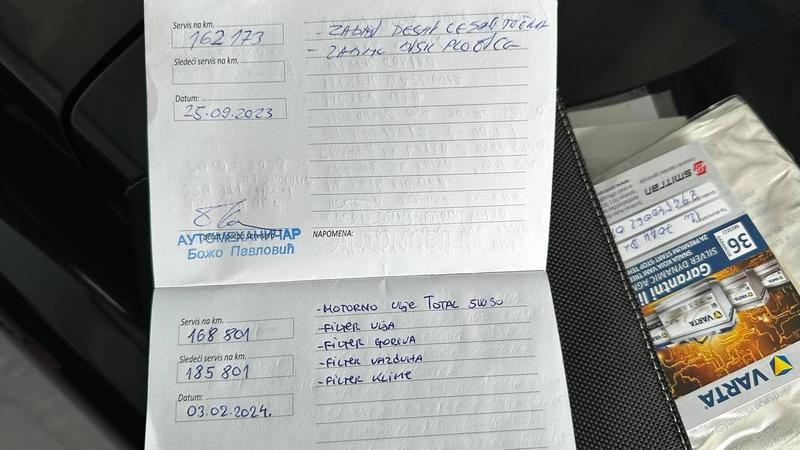 Servis na km.
162 173
Sledeći servis na km.
Datum:
25.09.2023
- ZADNJI DESNI
- ZADNJE DISK PLOČICE
АУТОМЕХАНИЧАР
Божо Павловић
NAPOMENA:
Servis na km.
168 801
Sledeći servis na km.
185 801
Datum:
03.02.2024.
-MOTORNO ULJE TOTAL 5W30
-FILTER ULJA
-FILTER GORIVA
-FILTER VAZDUHA
-FILTER KLIME
smitran
36
MESECI
SILVER DYNAMIC AGM
SNAGA KOJA VAM TREBA
ZA PREMIUM START-STOP
Garantni li
VARTA